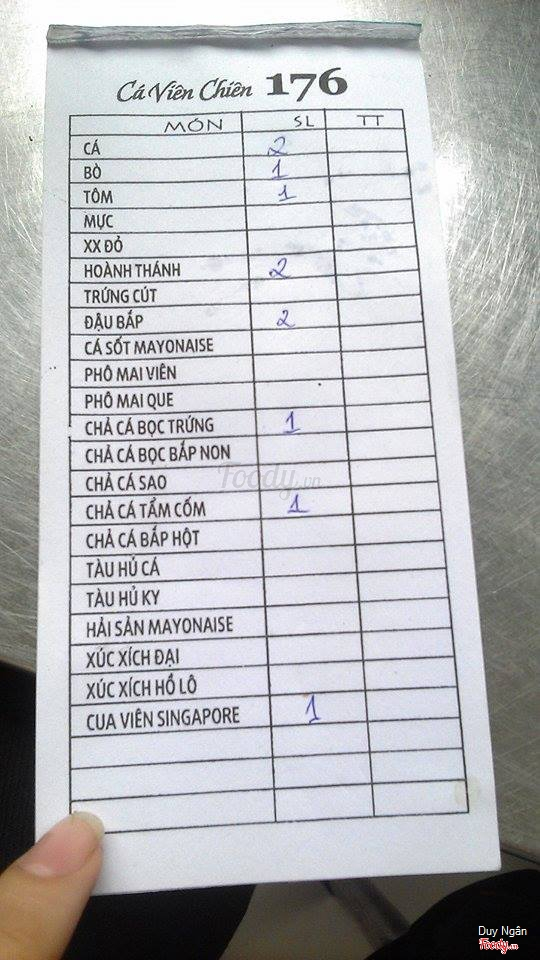 Cá Viên Chiên 176
MÓN SL TT
CÁ 2
BÒ 1
TÔM 1
MỰC
XX ĐỎ
HOÀNH THÁNH 2
TRỨNG CÚT
ĐẬU BẮP 2
CÁ SỐT MAYONAISE
PHÔ MAI VIÊN
PHÔ MAI QUE
CHẢ CÁ BỌC TRỨNG 1
CHẢ CÁ BỌC BẮP NON
CHẢ CÁ SAO
Foody.vn
CHẢ CÁ TẨM CỐM 1
CHẢ CÁ BẮP HỘT
TÀU HỦ CÁ
TÀU HỦ KY
HẢI SẢN MAYONAISE
XÚC XÍCH ĐẠI
XÚC XÍCH HỒ LÔ
CUA VIÊN SINGAPORE 1
Duy Ngân
Foody.vn